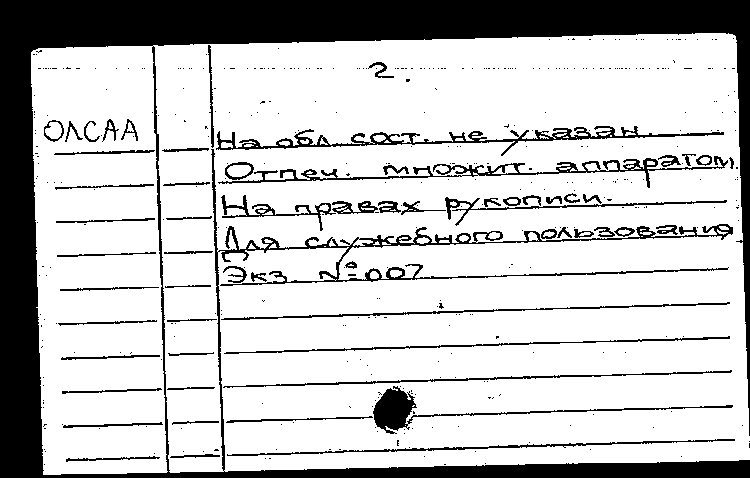 2.
ОЛСАА
На обл. сост. не указан.
Отпеч. множит. аппаратом.
На правах рукописи.
Для служебного пользования
Экз. № 007.